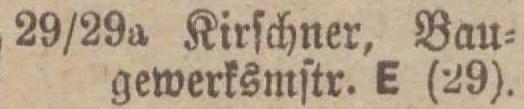 29/29a Kirſchner, Bau⸗
gewerksmſtr. E (29).